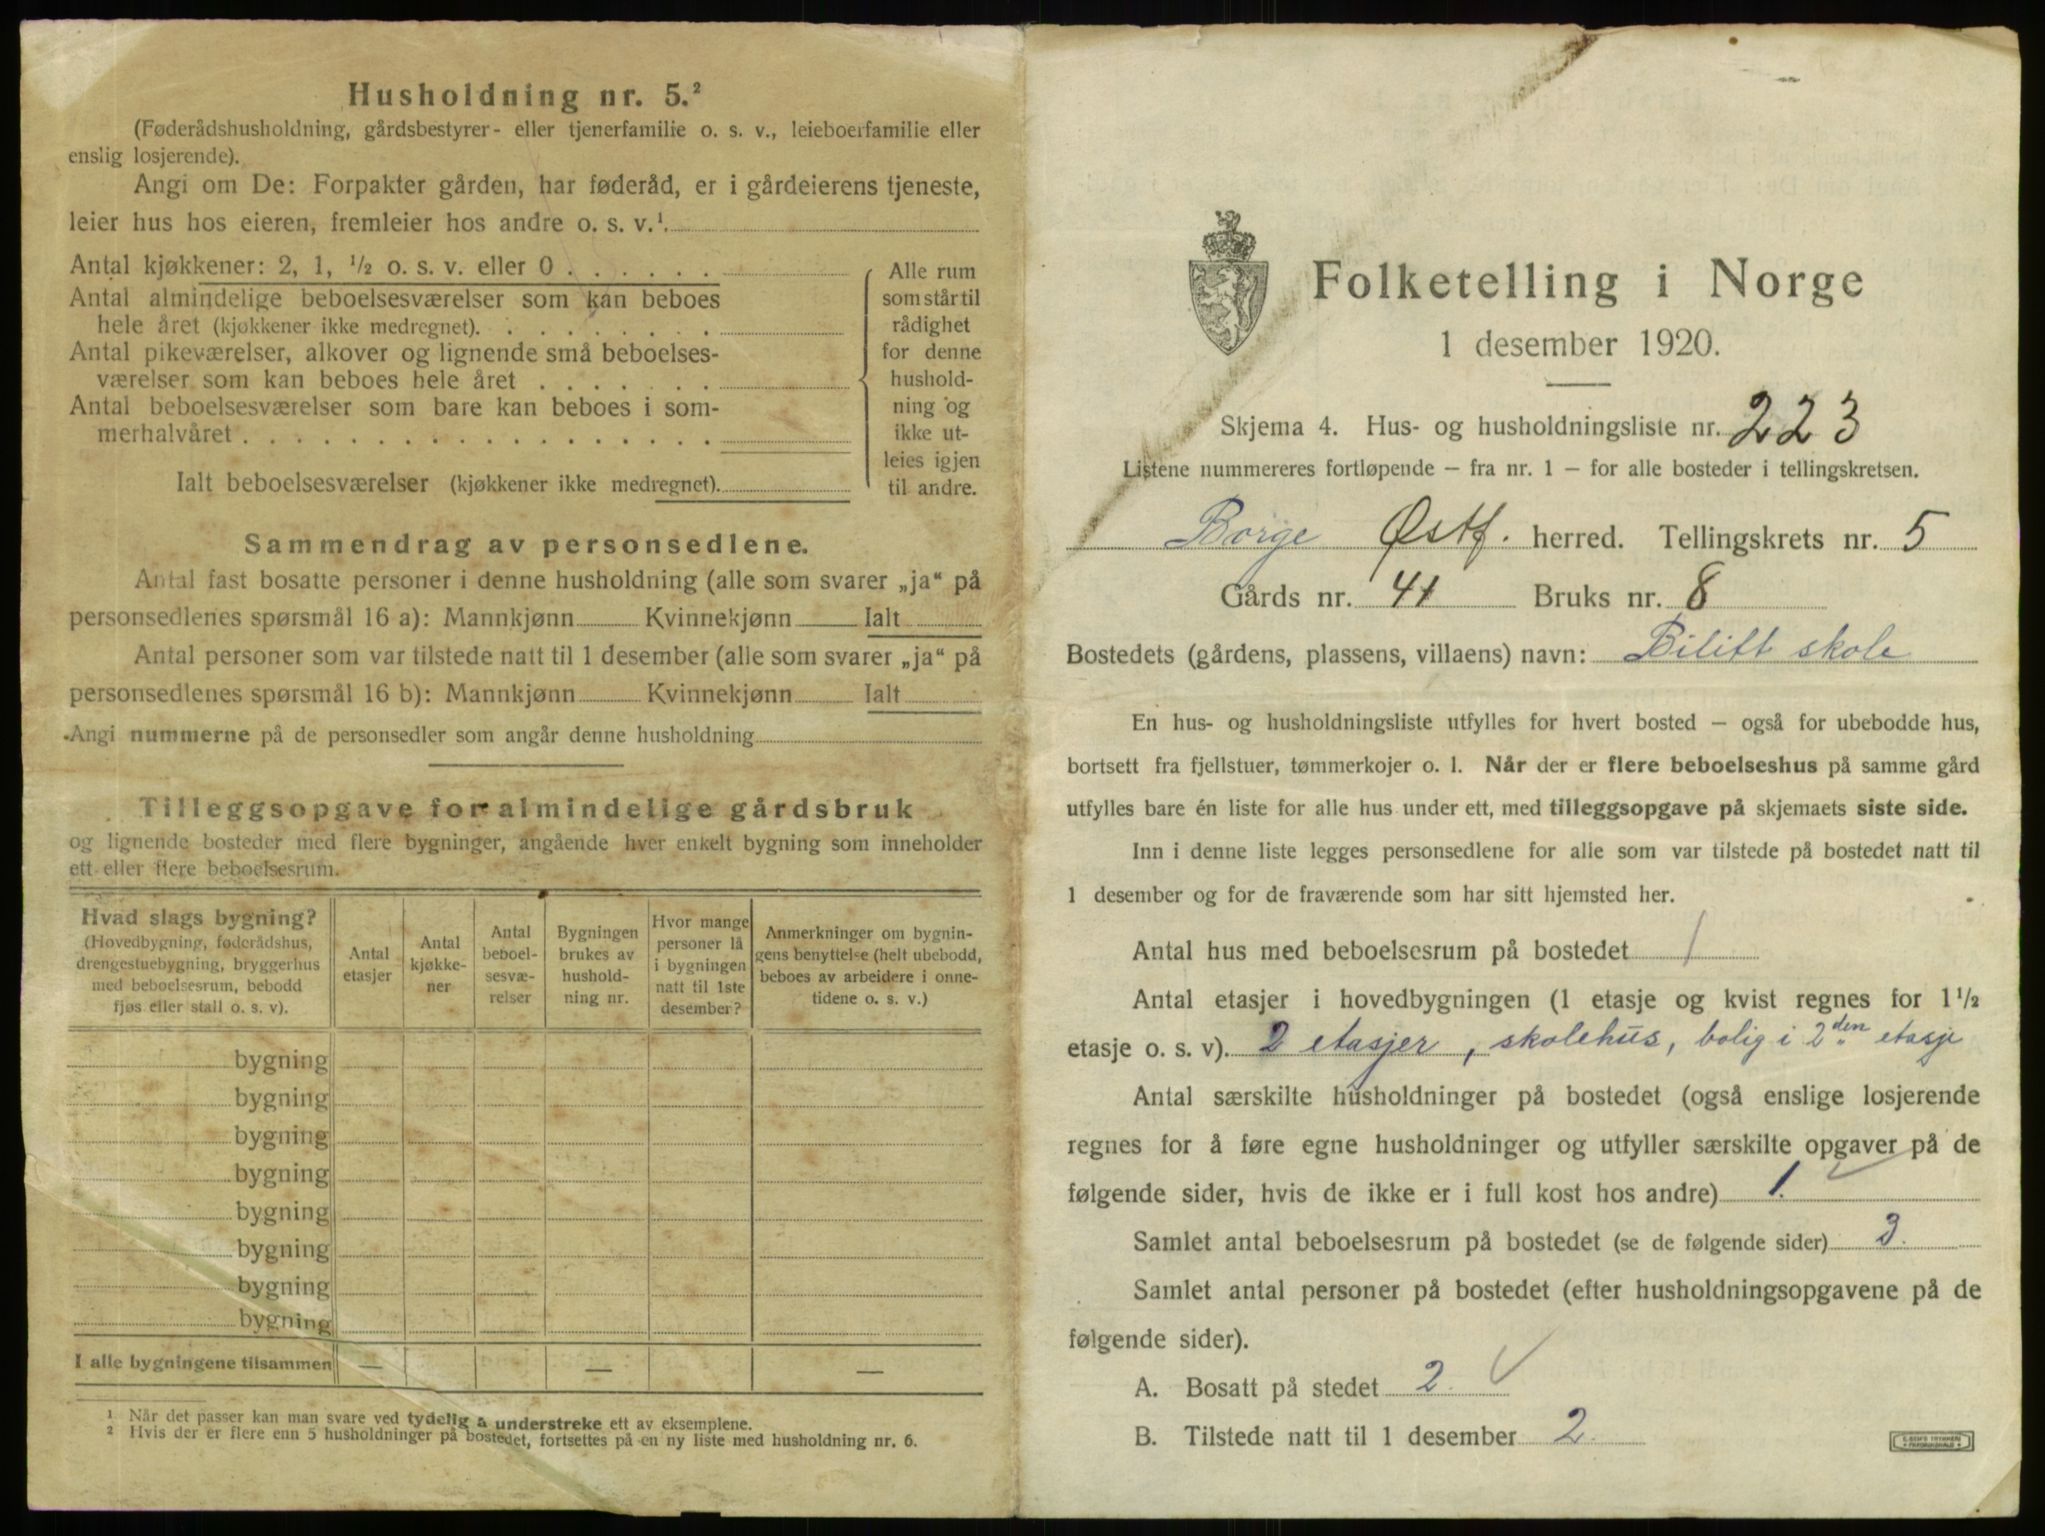 Husholdning nr. 5.²
(Føderådshusholdning, gårdsbestyrer- eller tjenerfamilie o. s. v., leieboerfamilie eller
enslig losjerende).
Angi om De: Forpakter gården, har føderåd, er i gårdeierens tjeneste,
leier hus hos eieren, fremleier hos andre o. s. v.¹
Antal kjøkkener: 2, 1, ½ o. s. v. eller 0 . . . . . .
Antal almindelige beboelsesværelser som kan beboes
hele året (kjøkkener ikke medregnet). . . . . . . . .
Antal pikeværelser, alkover og lignende små beboelses-
værelser som kan beboes hele året . . . . . . .
Antal beboelsesværelser som bare kan beboes i som-
merhalvåret . . . . . . . . . . . . . . . . . .
Ialt beboelsesværelser (kjøkkener ikke medregnet).
Alle rum
som står til
rådighet
for denne
hushold-
ning og
ikke ut-
leies igjen
til andre.
Sammendrag av personsedlene.
Antal fast bosatte personer i denne husholdning (alle som svarer „ja“ på
personsedlenes spørsmål 16 a): Mannkjønn Kvinnekjønn Ialt
Antal personer som var tilstede natt til 1 desember (alle som svarer „ja“ på
personsedlenes spørsmål 16 b): Mannkjønn Kvinnekjønn Ialt
Angi nummerne på de personsedler som angår denne husholdning
Tilleggsopgave for almindelige gårdsbruk
og lignende bosteder med flere bygninger, angående hver enkelt bygning som inneholder
ett eller flere beboelsesrum.
Hvad slags bygning?
(Hovedbygning, føderådshus,
drengestuebygning, bryggerhus
med beboelsesrum, bebodd
fjøs eller stall o. s. v).
Antal
etasjer
Antal
kjøkke-
ner
Antal
beboel-
sesvæ-
relser
Bygningen
brukes av
hushold-
ning nr.
Hvor mange
personer lå
i bygningen
natt til 1ste
desember?
Anmerkninger om bygnin-
gens benyttelse (helt ubebodd,
beboes av arbeidere i onne-
tidene o. s. v.)
bygning
bygning
bygning
bygning
bygning
bygning
bygning
bygning
I alle bygningene tilsammen — — —
¹ Når det passer kan man svare ved tydelig å understreke ett av eksemplene.
² Hvis der er flere enn 5 husholdninger på bostedet, fortsettes på en ny liste med husholdning nr. 6.
Folketelling i Norge
1 desember 1920.
Skjema 4. Hus- og husholdningsliste nr. 223
Listene nummereres fortløpende – fra nr. 1 – for alle bosteder i tellingskretsen.
Borge Østf. herred. Tellingskrets nr. 5
Gårds nr. 41 Bruks nr. 8
Bostedets (gårdens, plassens, villaens) navn: Bilitt skole
En hus- og husholdningsliste utfylles for hvert bosted – også for ubebodde hus,
bortsett fra fjellstuer, tømmerkojer o. l. Når der er flere beboelseshus på samme gård
utfylles bare én liste for alle hus under ett, med tilleggsopgave på skjemaets siste side.
Inn i denne liste legges personsedlene for alle som var tilstede på bostedet natt til
1 desember og for de fraværende som har sitt hjemsted her.
Antal hus med beboelsesrum på bostedet 1
Antal etasjer i hovedbygningen (1 etasje og kvist regnes for 1½
etasje o. s. v). 2 etasjer, skolehus, bolig i 2den etasje
Antal særskilte husholdninger på bostedet (også enslige losjerende
regnes for å føre egne husholdninger og utfyller særskilte opgaver på de
følgende sider, hvis de ikke er i full kost hos andre) 1.
Samlet antal beboelsesrum på bostedet (se de følgende sider) 3.
Samlet antal personer på bostedet (efter husholdningsopgavene på de
følgende sider).
A. Bosatt på stedet 2.
B. Tilstede natt til 1 desember 2.